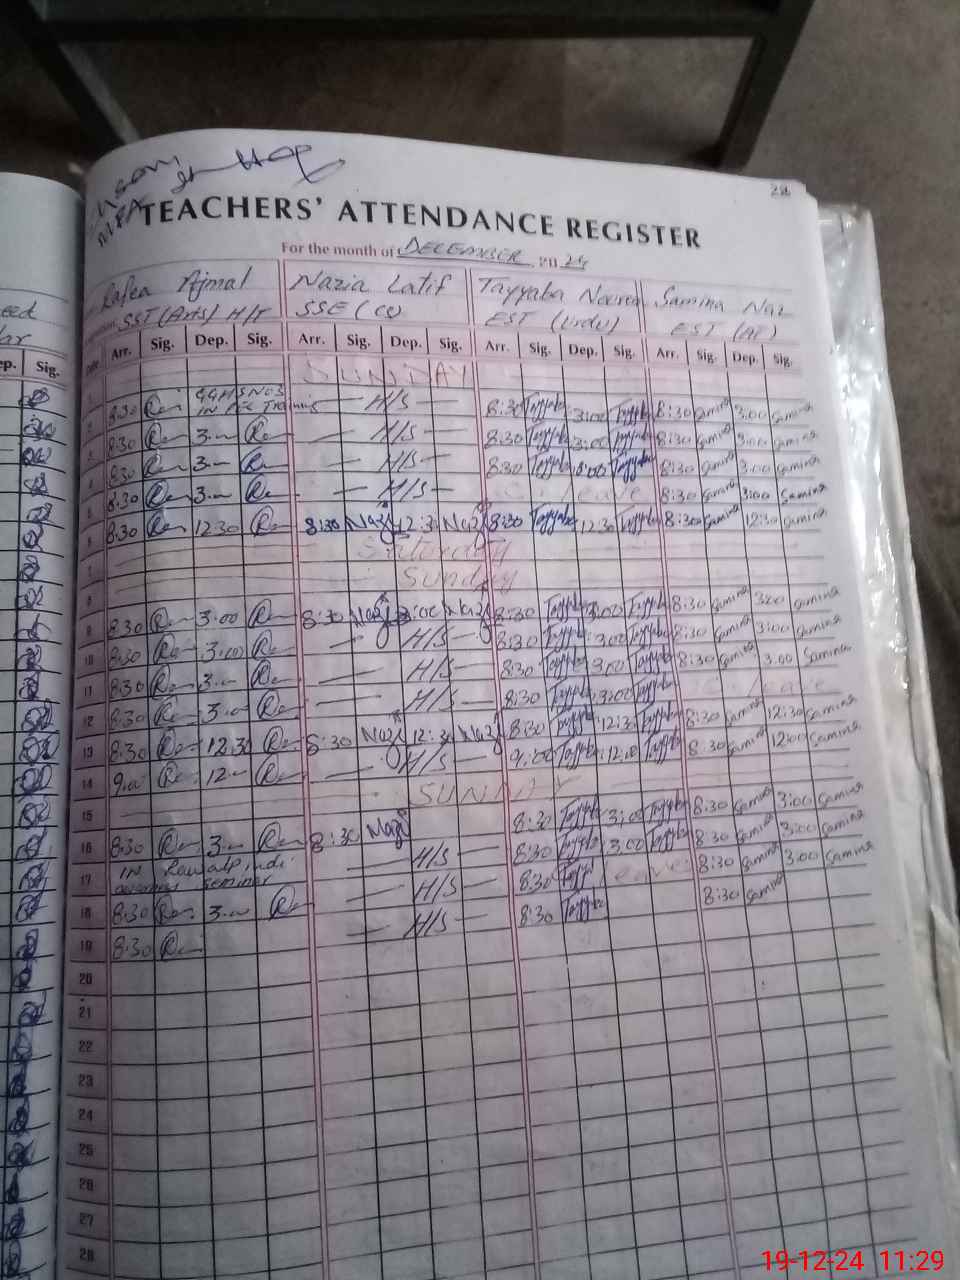 28
TEACHERS' ATTENDANCE REGISTER
For the month of DECEMBER 2024
Rafea Ajmal Nazia Latif Tayyaba Samina Naz
SST (Arts) H/T SSE (CS) EST (Urdu) EST (AT)
Arr. Sig. Dep. Sig. Arr. Sig. Dep. Sig. Arr. Sig. Dep. Sig. Arr. Sig. Dep. Sig.
ep. Sig.
1 SUNDAY
2 8:30 GGHS No 5 IN Training — H/S — 8:30 Tayyaba 3:00 Tayyaba 8:30 Samina 3:00 Samina
3 8:30 3.— — H/S — 8:30 Tayyaba 3:00 Tayyaba 8:30 Samina 3:00 Samina
4 8:30 3.— — H/S — 8:30 Tayyaba 3:00 Tayyaba 8:30 Samina 3:00 Samina
5 8:30 3.— — H/S — C. leave 8:30 Samina 3:00 Samina
6 8:30 12:30 8:30 Nazi 12:30 Nazi 8:30 Tayyaba 12:30 Tayyaba 8:30 Samina 12:30 Samina
7 Saturday
8 Sunday
9 8:30 3.00 8:30 Nazi 3:00 Nazi 8:30 Tayyaba 3:00 Tayyaba 8:30 Samina 3:00 Samina
10 8:30 3.00 — H/S — 8:30 Tayyaba 3:00 Tayyaba 8:30 Samina 3:00 Samina
11 8:30 3.— — H/S — 8:30 Tayyaba 3:00 Tayyaba 8:30 Samina 3.00 Samina
12 8:30 3.— — H/S — 8:30 Tayyaba 3:00 Tayyaba C. leave
13 8:30 12:30 8:30 Nazi 12:30 Nazi 8:30 Tayyaba 12:30 Tayyaba 8:30 Samina 12:30 Samina
14 9.00 12.— — H/S — 9:00 Tayyaba 12:00 Tayyaba 8:30 Samina 12:00 Samina
15 SUNDAY
16 8:30 3.— 8:30 Nazi 8:30 Tayyaba 3:00 Tayyaba 8:30 Samina 3:00 Samina
17 IN Rawalpindi seminar — H/S — 8:30 Tayyaba 3:00 Tayyaba 8:30 Samina 3:00 Samina
18 8:30 3.— — H/S — 8:30 Tayyaba leave 8:30 Samina 3:00 Samina
19 8:30 — H/S — 8:30 Tayyaba 8:30 Samina
20
21
22
23
24
25
26
27
28
19-12-24 11:29